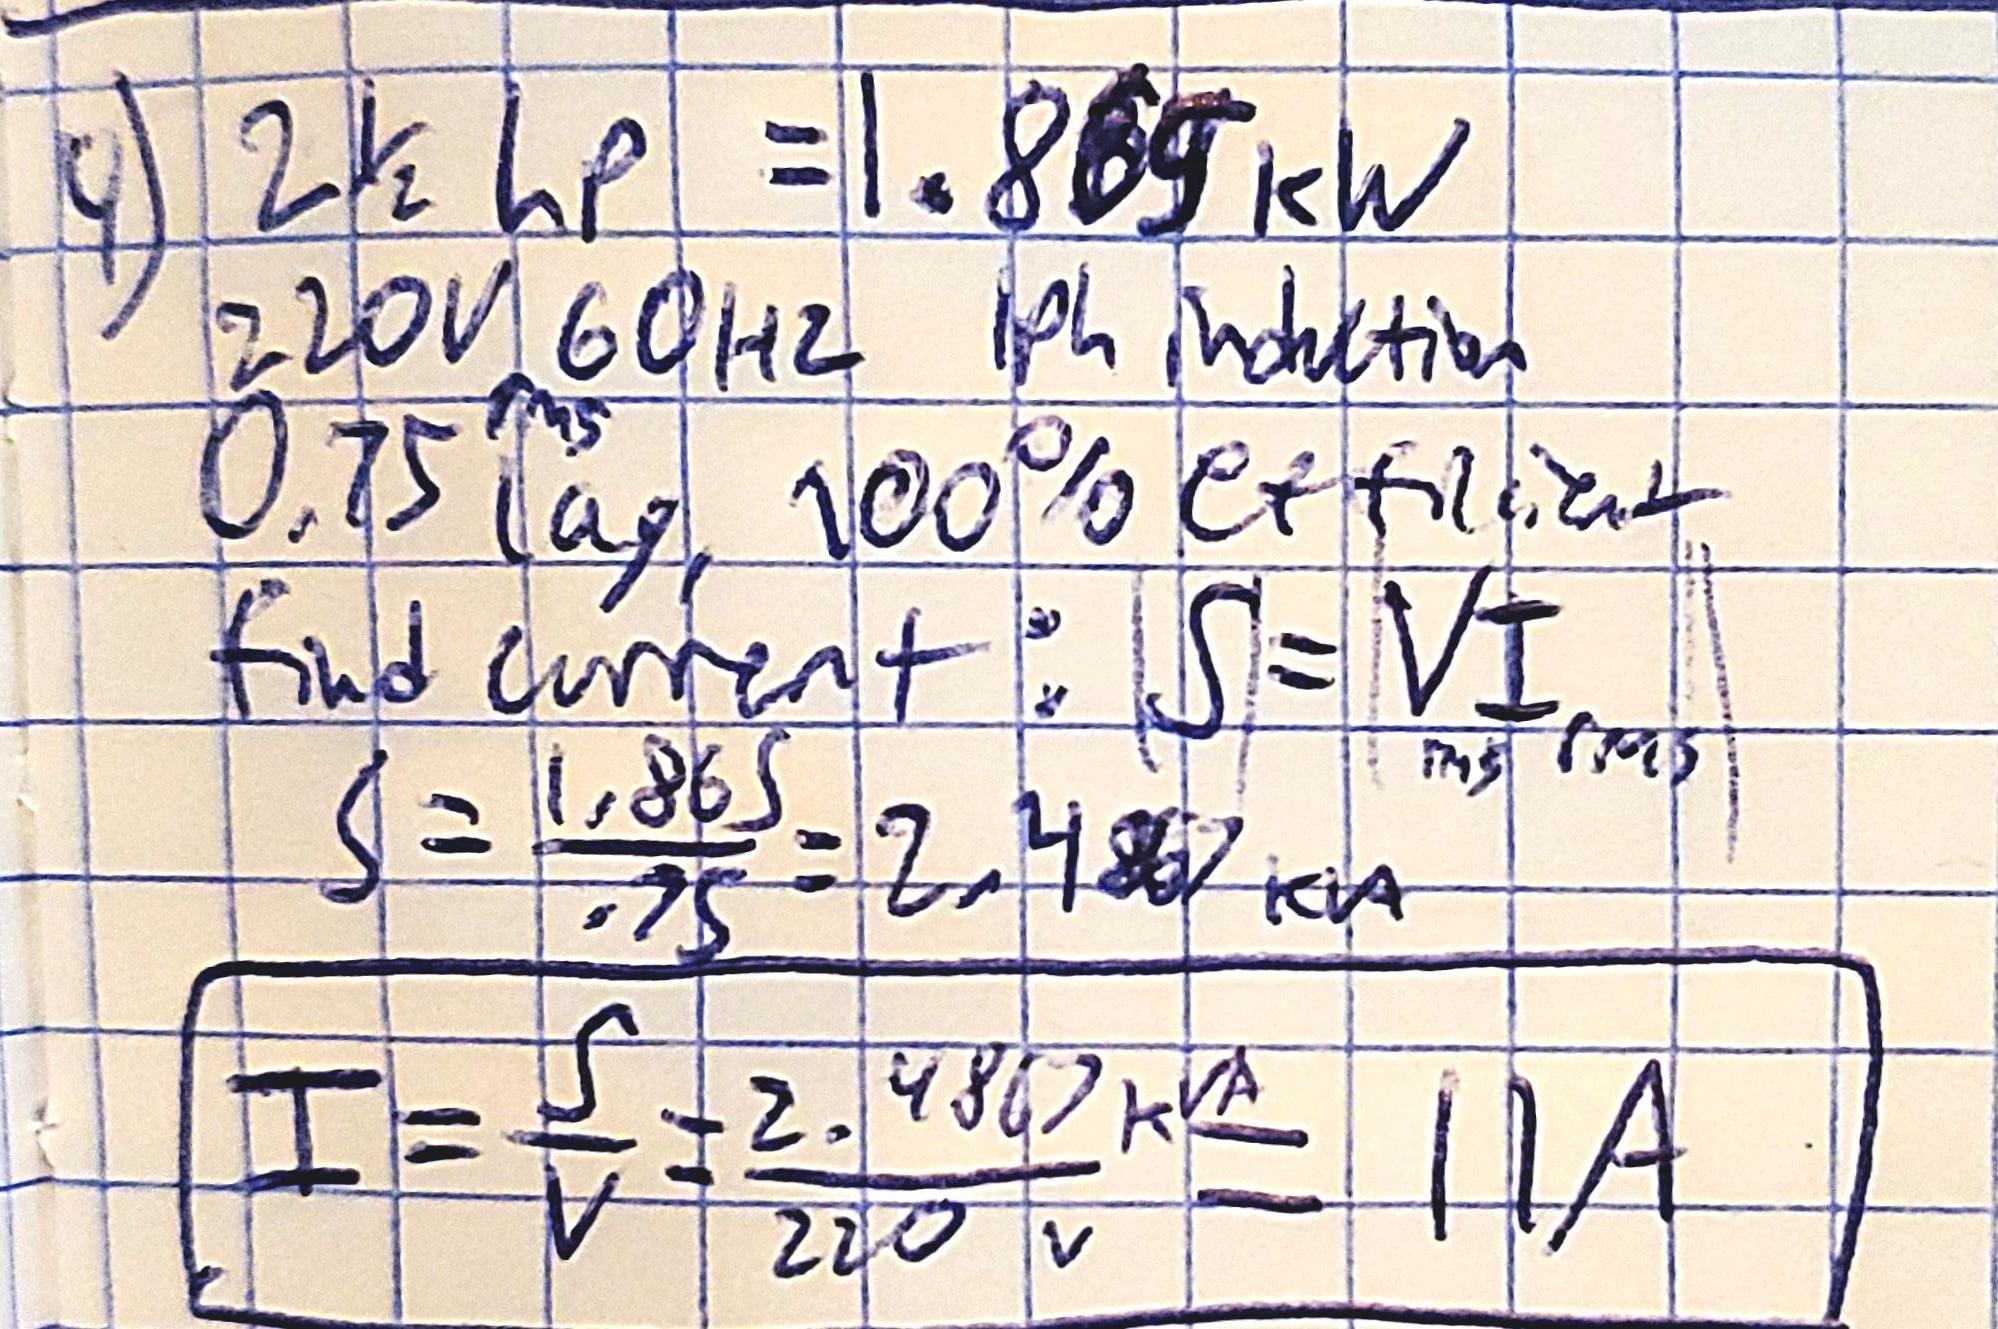 4) 2½ hp = 1.865 kW
220V 60Hz 1ph induction
rms
0.75 lag, 100% efficient
find current: |S| = |V I|
rms rms
S = 1.865/.75 = 2.4867 kVA
I = S/V = 2.4867 kVA/220 V = 11A